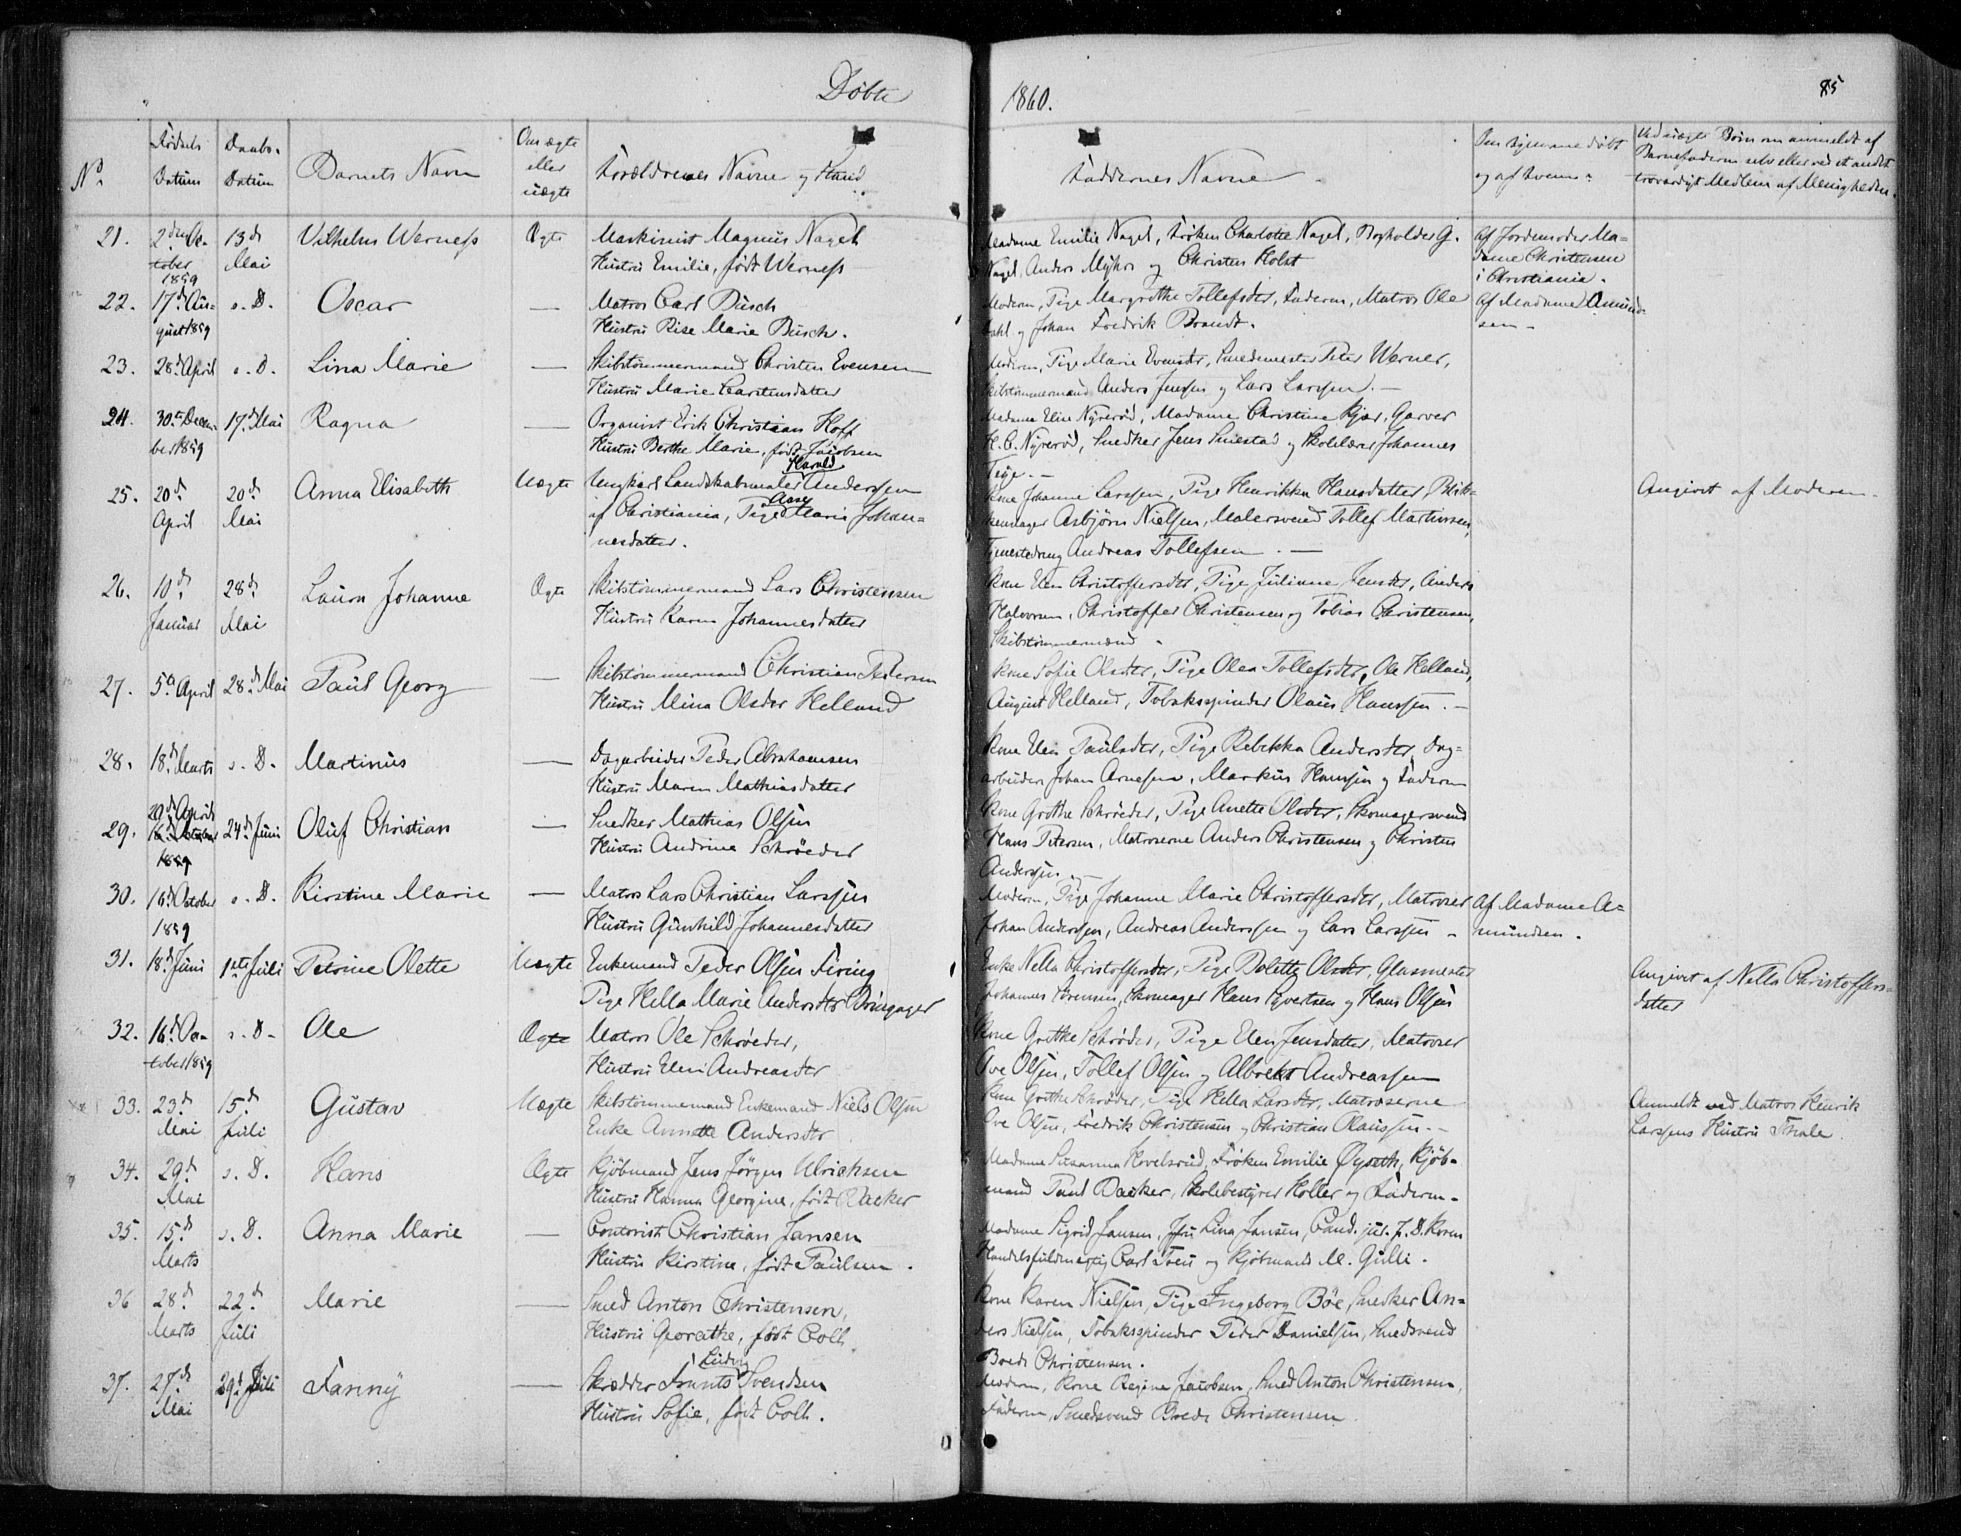 Døbte
1860.
85
No.
Fødsels Datum
Daabs-Datum
Barnets Navn
Om ægte eller uægte
Forældrenes Navne og Stand
Faddernes Navne
Om hjemmedøbt og af hvem.
Ved uægte Børn om anmeldt af Barnefaderen selv eller ved et andet troværdigt Medlem af Menigheden.
21. 2den October 1859 13d Mai Vilhelm Werness Ægte
Maskinist Magnus Nagel
Hustru Emilie, født Werness
Madame Emilie Nagel, Frøken Charlotte Nagel, Bogholder G.
Nagel, Anders Myhre og Christen Holst
Af Jordemoder Ma-
dame Christensen
i Christiania.
22. 17d August 1859 s. D. Oscar —
Matros Carl Busch
Hustru Rise Marie Busch.
Moderen, Pige Margrethe Tollefsdtr, Faderen, Matros Ole
Dahl og Johan Fredrik Brandt.
Af Madame Amund-
sen
23. 28d April s. D. Lina Marie —
Skibstømmermand Christen Evensen
Hustru Marie Carstensdatter
Moderen, Pige Marie Evensdtr, Smedemester Peter Werner,
Skibstømmermænd Anders Jensen og Lars Larssen. —
24. 30te December 1859 17d Mai Ragna —
Organist Erik Christian Hoff
Hustru Berthe Marie, født Jacobsen
Madame Eline Nyrerød, Madame Christine Kjær, Garver
H. C. Nyrerød, Snedker Jens Smestad og Skolelærer Johannes
Teije. —
25. 20d April 20d Mai Anna Elisabeth Uægte
Ungkarl Landskabsmaler Harald Anderssen
af Christiania, Pige Aase Marie Johan-
nesdatter.
Kone Johanne Larssen, Pige Henrikka Hansdatter, Blik-
kenslager Asbjørn Nielsen, Malersvend Tollef Martinsen,
Tjenestedreng Andreas Tollefsen. —
Angivet af Moderen.
26. 10d Januar 28d Mai Laura Johanne Ægte
Skibstømmermand Lars Christensen
Hustru Karen Johannesdatter
Kone Elen Christoffersdtr, Pige Juliane Jensdtr, Anders
Halvorsen, Christoffer Christensen og Tobias Christensen,
Skibstømmermænd.
27. 5te April 28d Mai Paul Georg —
Skibstømmermand Christian Petersen
Hustru Mina Olsdtr Helland
Kone Sofie Olsdtr, Pige Olea Tollefsdtr, Ole Helland,
August Helland, Tobaksspinder Olaus Hanssen. —
28. 18d Marts s. D. Martinius —
Dagarbeider Peder Abrahamsen
Hustru Maren Mathiasdatter
Kone Elen Paulsdtr, Pige Rebekka Andersdtr, Dag-
arbeider Johan Arnesen, Markus Hanssen og Faderen
20d April
29. 16d October 1859 24d Juni Oluf Christian —
Snedker Mathias Olsen
Hustru Andrine Schrøeder
Kone Grethe Schrøeder, Pige Anette Olsdtr, Skomagersvend
Hans Petersen, Matroserne Anders Christensen og Christen
Andersen.
30. 16d October 1859 s. D. Kirstine Marie —
Matros Lars Christian Larssen
Hustru Gunhild Johannesdatter
Moderen, Pige Johanne Marie Christoffersdtr, Matroser
Johan Anderssen, Andreas Anderssen og Lars Larssen —
Af Madame A-
mundsen.
31. 18d Juni 1ste Juli Petrine Olette Uægte
Enkemand Peder Olsen Firing
Pige Hella Marie Andersdtr
Enke Nella Christoffersdtr, Pige Bolette Olsdtr, Glasmester
Johannes Sørensen, Skomager Hans Syvertsen og Hans Olsen
Angivet af Nella Christoffers-
datter
32. 16d October 1859 s. D. Ole Ægte
Matros Ole Schrøeder,
Hustru Elen Andreasdtr
Kone Grethe Schrøder, Pige Elen Jensdatter, Matroser
Ove Olsen, Tollef Olsen og Albrekt Andreassen
33. 23d Mai 15d Juli Gustav Uægte
Skibstømmermand Enkemand Niels Olsen
Enke Annette Andersdtr
Kone Grethe Schrøder, Pige Hella Larsdtr, Matroserne
Ove Olsen, Fredrik Christensen og Christian Olaussen. —
Anmeldt ved Matros Henrik
Larssens Hustru Thale.
34. 29d Mai s. D. Hans Ægte
Kjøbmand Jens Jørgen Ulrichsen
Hustru Hanna Georgine, født Backer
Madame Susanna Hovelsrud, Frøken Emilie Øyseth, Kjøb-
mand Paul Backer, Skolebestyrer Holler og Faderen.
35. 15d Marts s. D. Anna Marie —
Contorist Christian Jansen
Hustru Kirstine, født Paulsen.
Madame Sigrid Jansen, Jfru Lina Jansen, Cand. jur. P. D. Koren
Handelsfuldmægtig Carl Foen og Kjøbmand M. Gulli.
36 28d Marts 22d Juli Marie —
Smed Anton Christensen,
Hustru Georethe, født Colb.
Kone Karen Nielsen, Pige Ingeborg Bøe, Snedker An-
ders Nielsen, Tobaksspinder Peder Danielsen, Smedsvend
Brede Christensen.
37. 27d Mai 29d Juli Fanny —
Skrædder Frants Ludvig Svendsen
Hustru Sofie, født Colb.
Moderen, Kone Regine Jacobsen, Smed Anton Christensen,
Faderen, Smedsvend Brede Christensen.